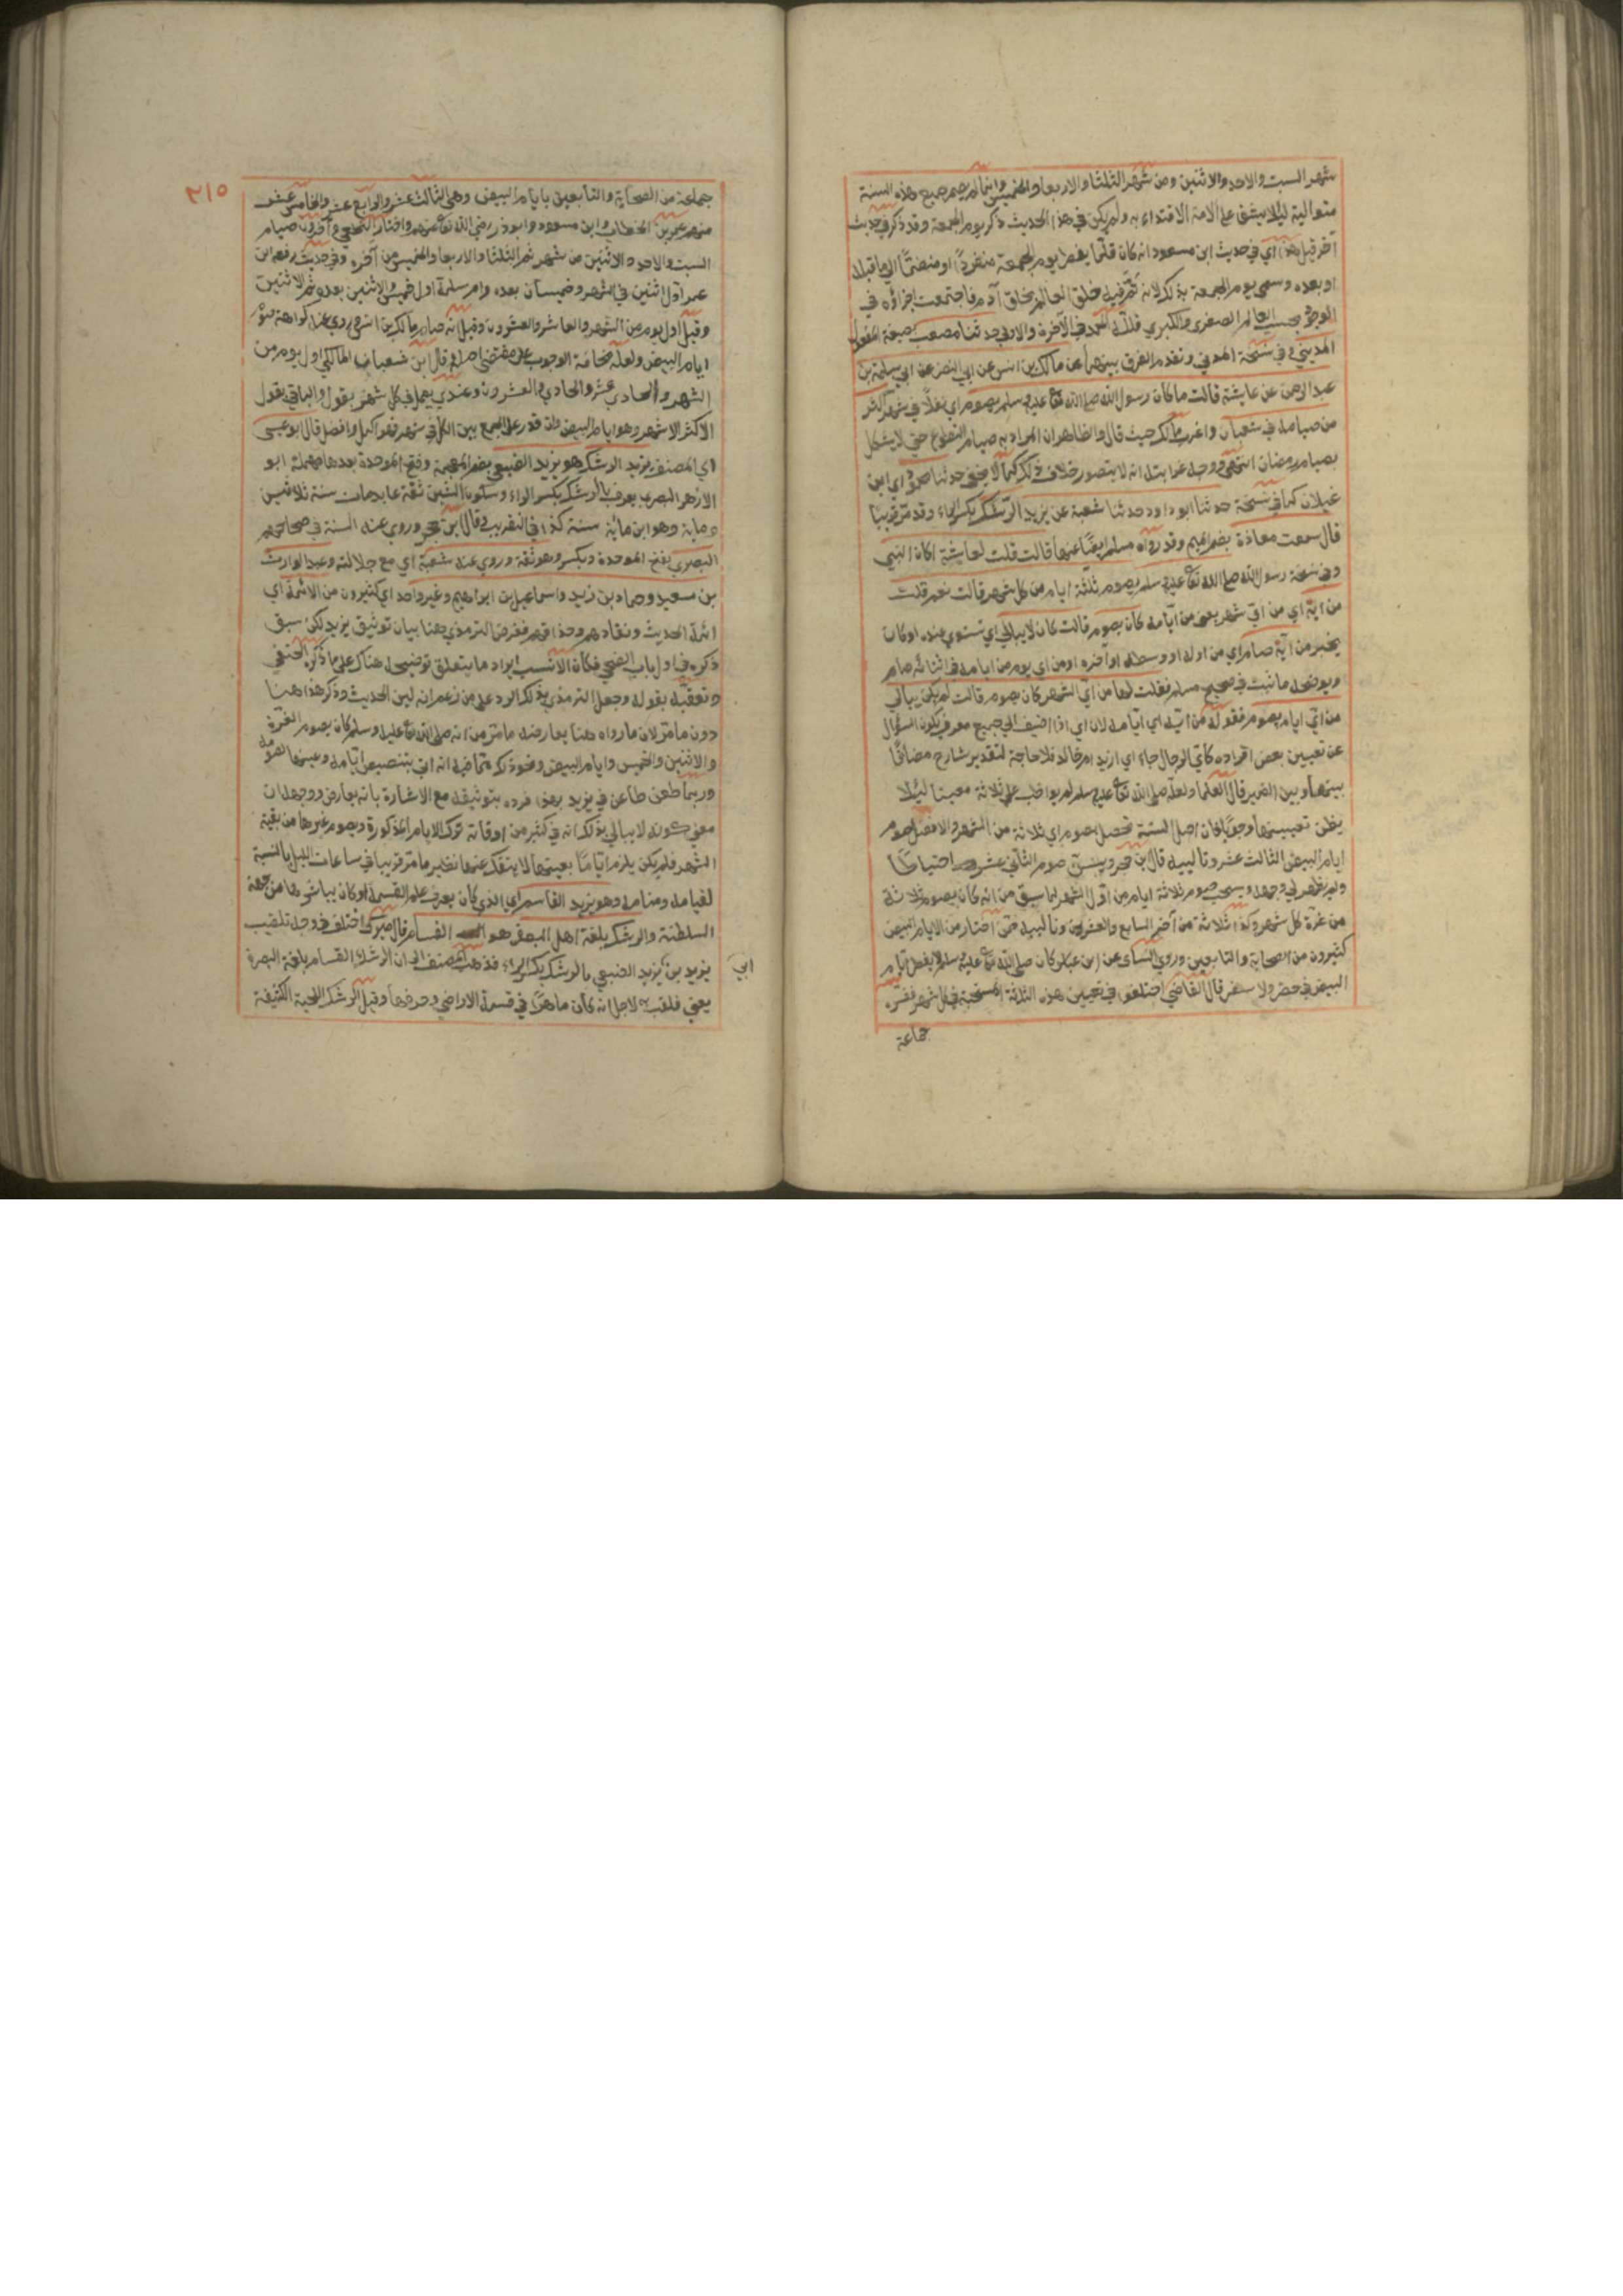 شهر السبت والاحد والاثنين ومن شهر الثلثا والاربعا والخميس وانما لم يصم جميع هذه السنة
متوالية ليلا يشق على الامة الاقتداء به ولم يكن في هذا الحديث ذكر يوم الجمعة وقد ذكر في حديث
آخر قبل هذا اي في حديث ابن مسعود انه كان قلما يفطر يوم الجمعة منفردا او منضما الى ما قبله
او بعده وسمي يوم الجمعة بذلك لانه تم فيه خلق العالم بخلق آدم فاجتمعت اجزاؤه في
الوجود بحسب العالم الصغرى والكبرى فلله الحمد في الآخرة والاولى حدثنا مصعب بصيغة المفعول
المديني وفي نسخة المدني وتقدم الفرق بينهما عن مالك بن انس عن ابي النضر عن ابي سلمة بن
عبد الرحمن عن عايشة قالت ما كان رسول الله صلى الله تعا عليه وسلم يصوم اي نفلا في شهر اكثر
من صيامه في شعبان واغرب مالك حيث قال والظاهر ان المراد به صيام التطوع حتى لا يشكل
بصيام رمضان انتهى ووجه غرابته انه لا يتصور خلاف ذلك كما لا يخفى حدثنا محمود اي ابن
غيلان كما في نسخة حدثنا ابو داود حدثنا شعبة عن يزيد الرشك بكسر الراء وقد مر قريبا
قال سمعت معاذة بضم الميم وقد رواه مسلم ايضا عنها قالت قلت لعايشة اكان النبي
وفي نسخة رسول الله صلى الله تعا عليه وسلم يصوم ثلثة ايام من كل شهر قالت نعم قلت
من ايه اي من اي شهر يعني من ايامه كان يصوم قالت كان لا يبالي اي تستوي عنده او كان
يخير من آية صام اي من اوله او وسطه او آخره او من اي يوم من ايامه في اثنائه صام
ويوضحه ما ثبت في صحيح مسلم فقلت لها من اي الشهر كان يصوم قالت لم يكن يبالي
من اي ايام يصوم فقوله من ايه اي ايامه لان اي اذا اضيف الى جميع معرف يكون السؤال
عن تعيين بعض افراده كاي الرجال جاء اي ازيد ام خالد فلا حاجة لتقدير شارح مضافا
بينها وبين الضمير قال العلما ولعله صلى الله تعا عليه وسلم لم يواظب على ثلاثة معينا ليلا
يظن تعيينها وجوبا فان اصل السنة تحصل بصوم اي ثلاثة من الشهر والافضل صوم
ايام البيض الثالث عشر وتالييه قال ابن حجر ويسن صوم الثاني عشر احتياطا
ولم يظهر لي وجهه ويستحب صوم ثلاثة ايام من اول الشهر لما سبق من انه كان يصوم ثلاثة
من غرة كل شهر وكذا ثلاثة من آخره السابع والعشرين وتالييه فمن اختار من الايام البيض
كثيرون من الصحابة والتابعين وروى النسائي عن ابن عباس كان صلى الله تعا عليه وسلم لا يفطر ايام
البيض في حضر ولا سفر قال القاضي اختلفوا في تعيين هذه الثلاثة المستحبة في كل شهر ففسره
جماعة
٢١٥
جماعة من الصحابة والتابعين بايام البيض وهي الثالث عشر والرابع عشر والخامس عشر
منهم عمر بن الخطاب وابن مسعود وابو ذر رضي الله تعا عنهم واختار النخعي وآخرون صيام
السبت والاحد والاثنين من شهر ثم الثلثا والاربعا والخميس من آخره وفي حديث رفعه ابن
عمر اول اثنين في الشهر وخميسان بعده وام سلمة اول خميس والاثنين بعده ثم الاثنين
وقيل اول يوم من الشهر والعاشر والعشرون وقيل انه صيام مالك بن انس وروي عنه كراهة صوم
ايام البيض ولعله مخافة الوجوب على مقتضى اصله وقال ابن شعبان المالكي اول يوم من
الشهر والحادي عشر والحادي والعشرون وعندي يعمل في كل شهر بقول والباقي بقول
الاكثر الاشهر وهو ايام البيض وان قدر على الجمع بين الكل في شهر فهو اكمل وافضل قال ابو عيسى
اي المصنف يزيد الرشك هو يزيد الضبعي بضم المعجمة وفتح الموحدة بعدها مهملة ابو
الازهر البصري يعرف بالرشك بكسر الراء وسكون الشين ثقة عابد مات سنة ثلاثين
وماية وهو ابن مائة سنة كذا في التقريب وقال ابن حجر وروى عنه الستة في صحاحهم
البصري بفتح الموحدة وبكسر وهو ثقة وروى عنه شعبة اي مع جلالته وعبد الوارث
بن سعيد وحماد بن زيد واسماعيل بن ابراهيم وغير واحد اي كثيرون من الائمة اي
ائمة الحديث ونقادهم وحذاقهم فغرض الترمذي هنا بيان توثيق يزيد لكن سبق
ذكره في اول باب الضحى فكان الانسب ايراد ما يتعلق بتوضيحه هناك على ما ذكره الحنفي
وتعقبه بقوله وجعل الترمذي بذلك الرد على من زعم انه لين الحديث وذكر هذا هنا
دون ما مر لان ما رواه هنا يعارضه ما مر من انه صلى الله تعا عليه وسلم كان يصوم الغرة
والاثنين والخميس وايام البيض ونحو ذلك مما فيه انه اتى بتخصيص ايامه وعينها لصومه
وربما طعن طاعن في يزيد بهذا فرده بتوثيقه مع الاشارة بانه يعارض ووجهه ان
معنى كونه لا يبالي بذلك انه في كثير من اوقاته ترك الايام المذكورة ويصوم غيرها من بقية
الشهر فلم يكن يلزم اياما بعينها لا ينفك عنها نظير ما مر قريبا في ساعات الليل بالنسبة
لقيامه ومنامه وهو يزيد القاسم اي الذي كان يعرف علم القسمة او كان يباشرها من جهة
السلطنة والرشك بلغة اهل البصرة هو القسام قال ميرك اختلف في وجه تلقيب
يزيد بن يزيد الضبعي بالرشك بكسر الراء فذهب المصنف الى ان الرشك القسام بلغة البصرة
ابي
يعني فلقب به لاجل انه كان ماهرا في قسمة الاراضي وحرفها وقيل الرشك اللحية الكثيفة